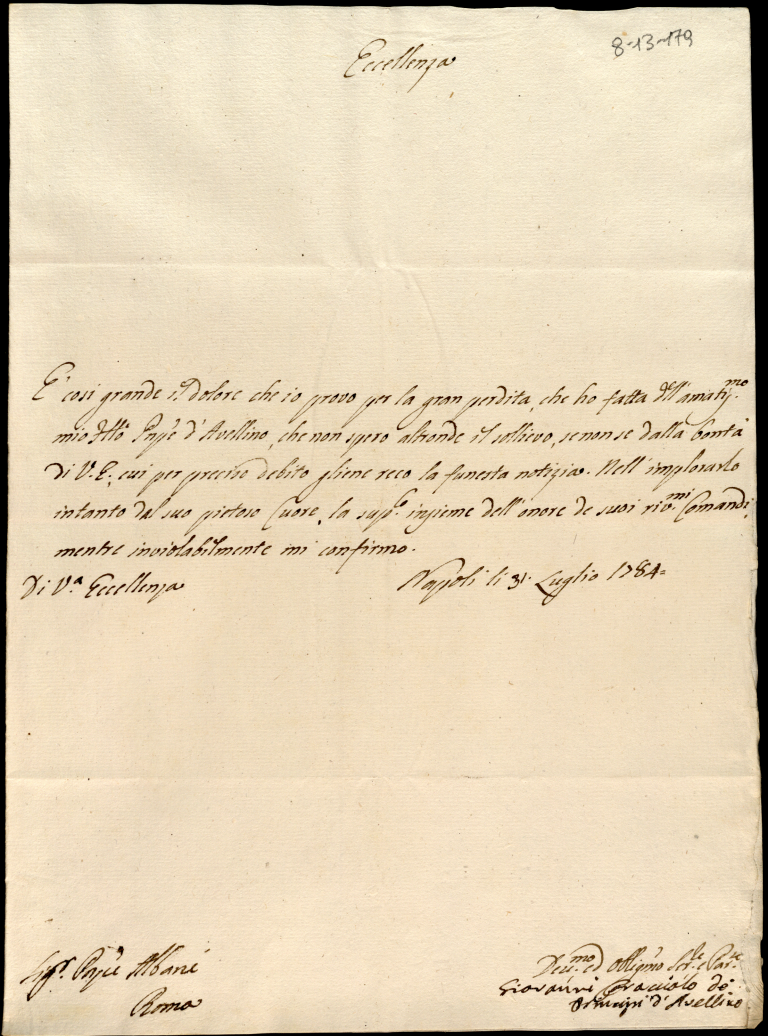 8-13-179
Eccellenza
E' cosi grande il dolore che io provo per la gran perdita, che ho fatta dell'amatis.mo
mio Pnpe d'Avellino, che non spero altronde il sollievo, se non se dalla bontà
di V.E., cui per preciso debito gliene reco la funesta notizia. Nell'implorarlo
intanto dal suo pietoso Cuore, la sup.co insieme dell'onore de suoi riv.mi Comandi,
mentre inviolabilmente mi confirmo.
Di V.a Eccellenza
Napoli li 31. Luglio 1784=
Sig.r Pnpe Albani
Roma
Dev.mo ed Obligmo Ser.e Par.te
Giovanni Caracciolo de
Principi d'Avellino